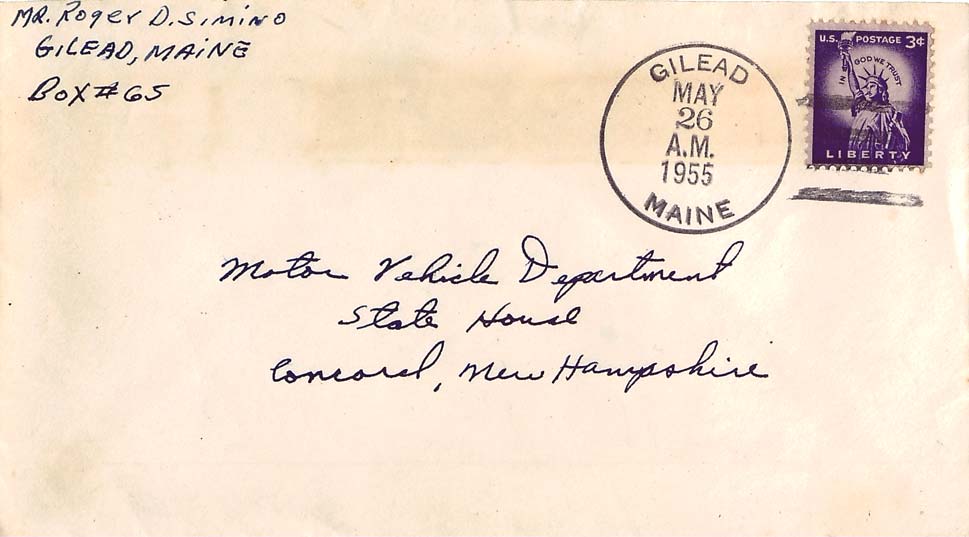 MR. Roger D. SIMINO
GILEAD, MAINE
BOX # 65
GILEAD
MAY
26
A.M.
1955
MAINE
U.S. POSTAGE 3¢
IN GOD WE TRUST
LIBERTY
Motor Vehicle Department
State House
Concord, New Hampshire